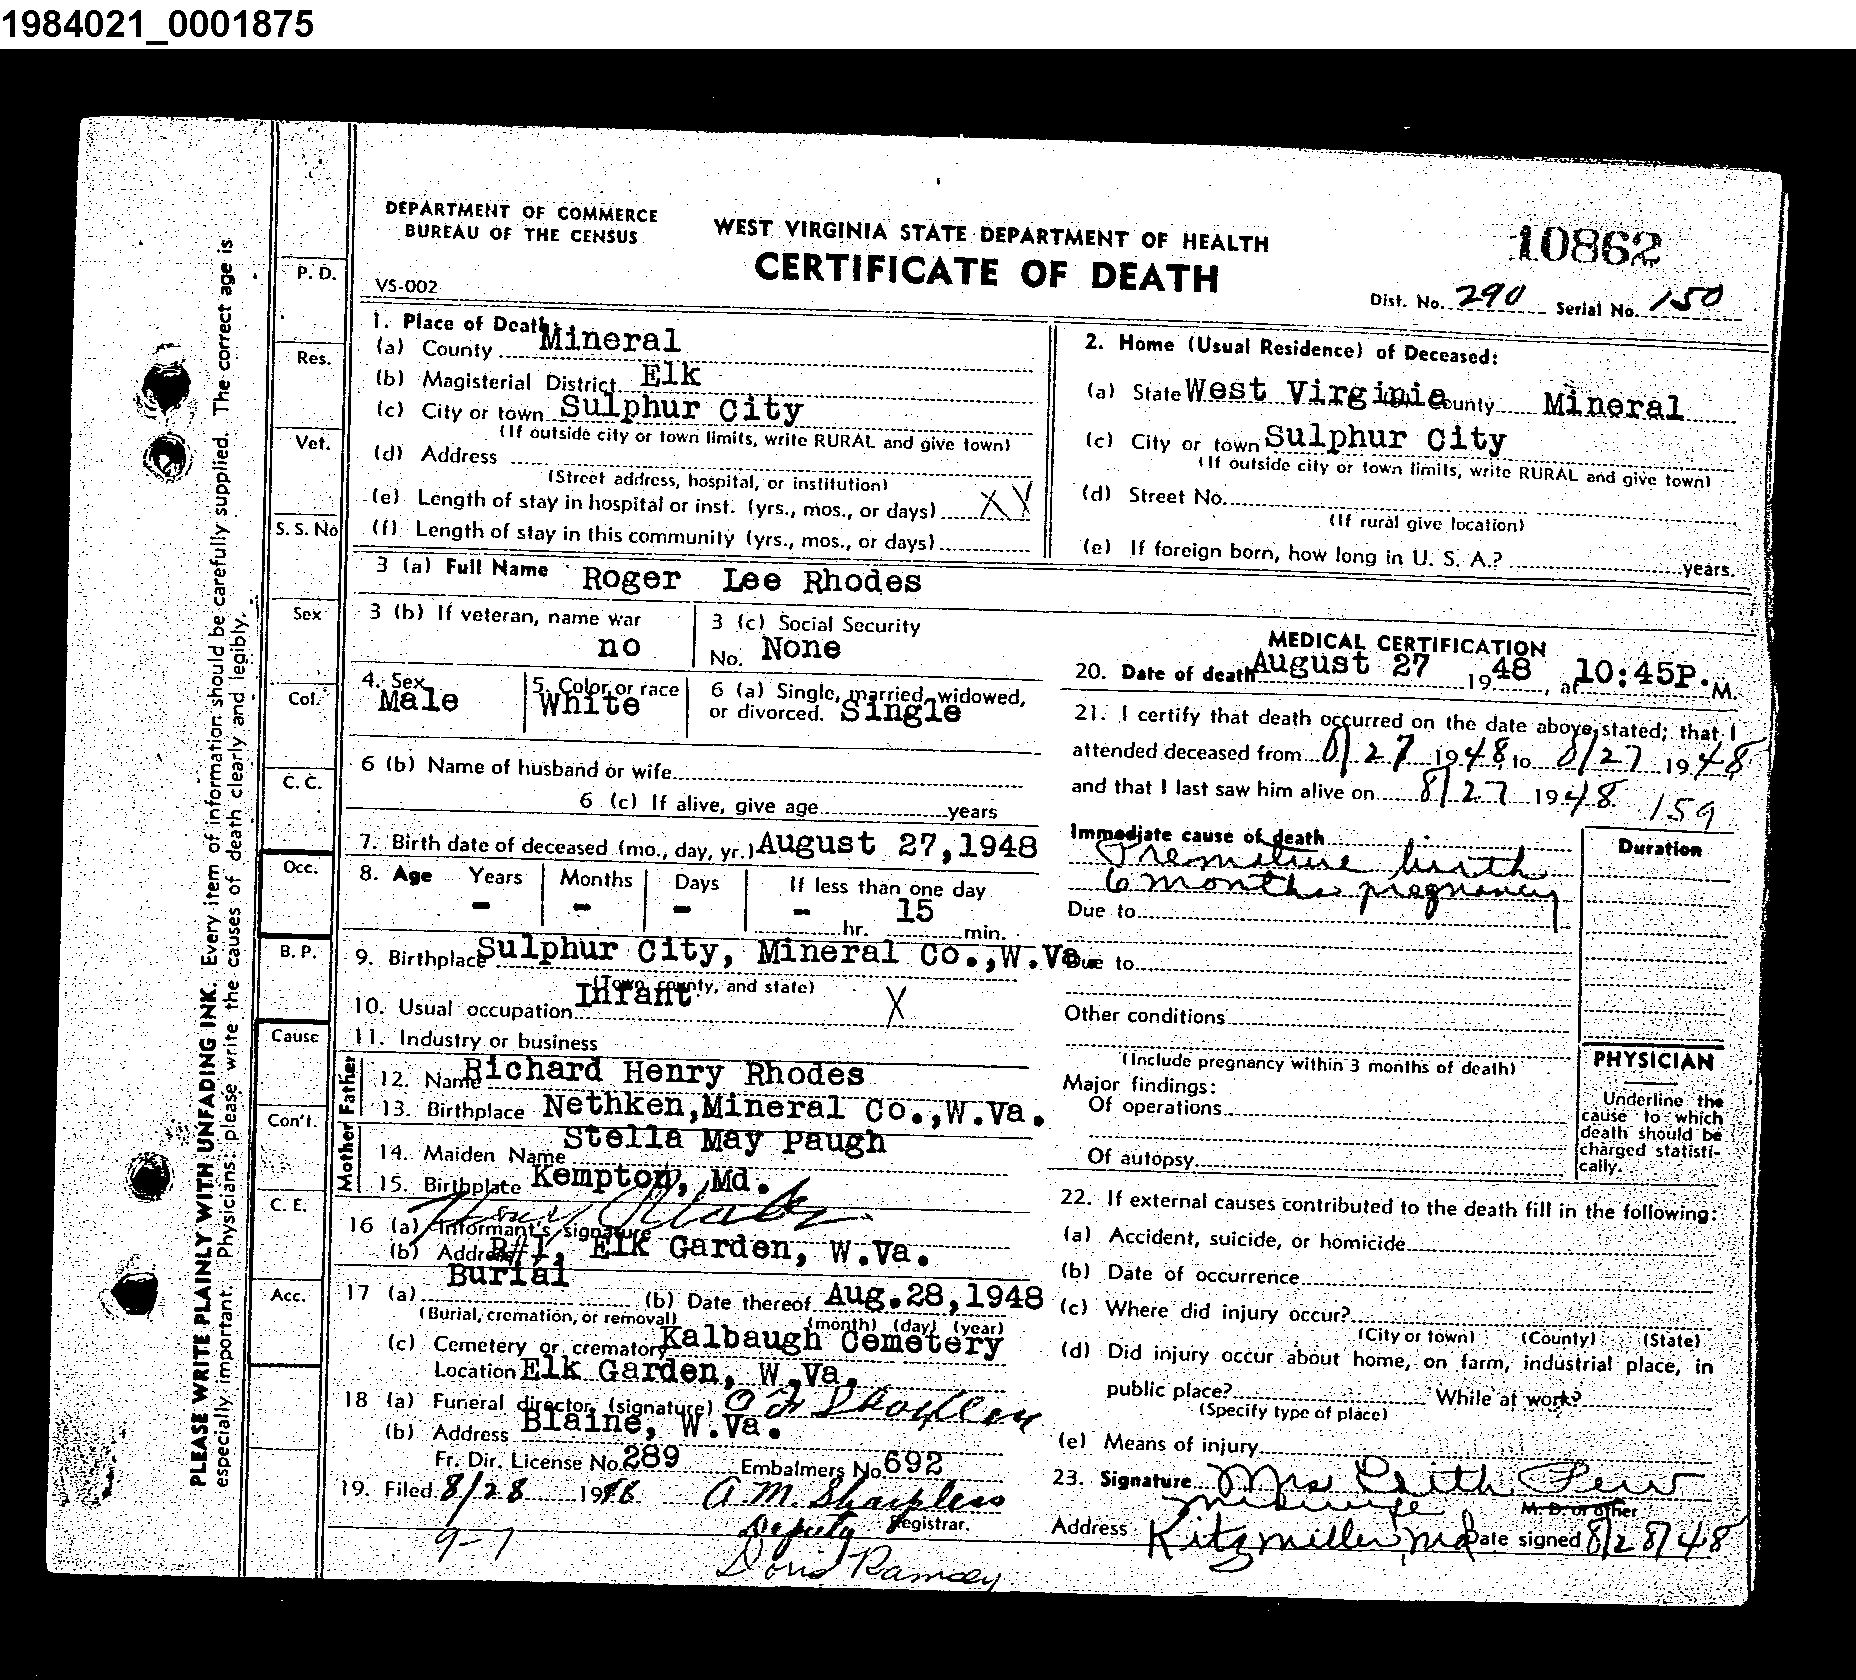 1984021_0001875
DEPARTMENT OF COMMERCE
BUREAU OF THE CENSUS
VS-002
WEST VIRGINIA STATE DEPARTMENT OF HEALTH
CERTIFICATE OF DEATH
10862
Dist. No. 290 Serial No. 150
PLEASE WRITE PLAINLY WITH UNFADING INK. Every item of information should be carefully supplied. The correct age is
especially important. Physicians: please write the causes of death clearly and legibly.
P. D.
Res.
Vet.
S. S. No
Sex
Col.
C. C.
Occ.
B. P.
Cause
Con't.
C. E.
Acc.
1. Place of Death:
(a) County Mineral
(b) Magisterial District Elk
(c) City or town Sulphur City
(If outside city or town limits, write RURAL and give town)
(d) Address
(Street address, hospital, or institution)
(e) Length of stay in hospital or inst. (yrs., mos., or days) X Y
(f) Length of stay in this community (yrs., mos., or days)
2. Home (Usual Residence) of Deceased:
(a) State West Virginia County Mineral
(c) City or town Sulphur City
(If outside city or town limits, write RURAL and give town)
(d) Street No.
(If rural give location)
(e) If foreign born, how long in U. S. A.? years.
3 (a) Full Name Roger Lee Rhodes
3 (b) If veteran, name war
no
3 (c) Social Security
No. None
4. Sex
Male
5. Color or race
White
6 (a) Single, married, widowed,
or divorced. Single
6 (b) Name of husband or wife
6 (c) If alive, give age years
7. Birth date of deceased (mo., day, yr.) August 27,1948
8. Age Years Months Days If less than one day
- - - - hr. 15 min.
9. Birthplace Sulphur City, Mineral Co.,W.Va.
(Town, county, and state)
10. Usual occupation Infant X
11. Industry or business
Father
12. Name Richard Henry Rhodes
13. Birthplace Nethken,Mineral Co.,W.Va.
Mother
14. Maiden Name Stella May Paugh
15. Birthplace Kempton, Md.
16 (a) Informant's signature
(b) Address R#1, Elk Garden, W.Va.
17 (a) Burial (b) Date thereof Aug.28,1948
(Burial, cremation, or removal) (month) (day) (year)
(c) Cemetery or crematory Kalbaugh Cemetery
Location Elk Garden, W.Va.
18 (a) Funeral director (signature)
(b) Address Blaine, W.Va.
Fr. Dir. License No. 289 Embalmers No. 692
19. Filed 8/28 19 A M Sharpless
Deputy Registrar.
9-7
Doris Ramsey
MEDICAL CERTIFICATION
20. Date of death August 27 1948, at 10:45P. M.
21. I certify that death occurred on the date above stated; that I
attended deceased from 8/27 1948, to 8/27 1948
and that I last saw him alive on 8/27 1948
159
Immediate cause of death
Premature birth
6 months pregnancy
Duration
Due to
Due to
Other conditions
(Include pregnancy within 3 months of death)
Major findings:
Of operations
Of autopsy
PHYSICIAN
Underline the
cause to which
death should be
charged statisti-
cally.
22. If external causes contributed to the death fill in the following:
(a) Accident, suicide, or homicide
(b) Date of occurrence
(c) Where did injury occur?
(City or town) (County) (State)
(d) Did injury occur about home, on farm, industrial place, in
public place? While at work?
(Specify type of place)
(e) Means of injury
23. Signature Mrs Edith Pew
Midwife M. D. or other
Address Kitzmiller, Md Date signed 8/28/48